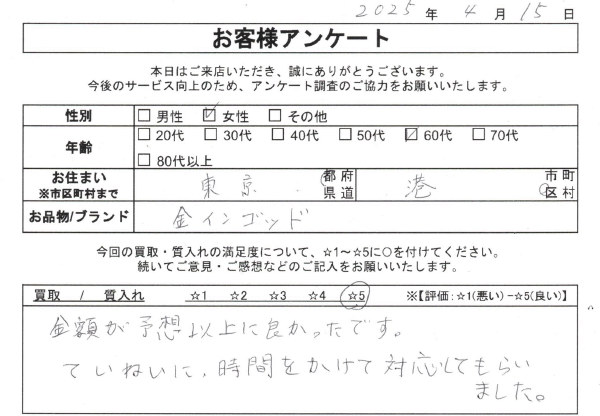 2025 年 4 月 15 日
お客様アンケート
本日はご来店いただき、誠にありがとうございます。
今後のサービス向上のため、アンケート調査のご協力をお願いいたします。
性別 □ 男性 ☑ 女性 □ その他
年齢 □ 20代 □ 30代 □ 40代 □ 50代 ☑ 60代 □ 70代
□ 80代以上
お住まい ※市区町村まで 東京 都府県道 港 市町区村
お品物/ブランド 金インゴッド
今回の買取・質入れの満足度について、☆1～☆5に○を付けてください。
続いてご意見・ご感想などのご記入をお願いいたします。
買取 / 質入れ ☆1 ☆2 ☆3 ☆4 ☆5 ※【評価:☆1(悪い)－☆5(良い)】
金額が予想以上に良かったです。
ていねいに、時間をかけて対応してもらい
ました。